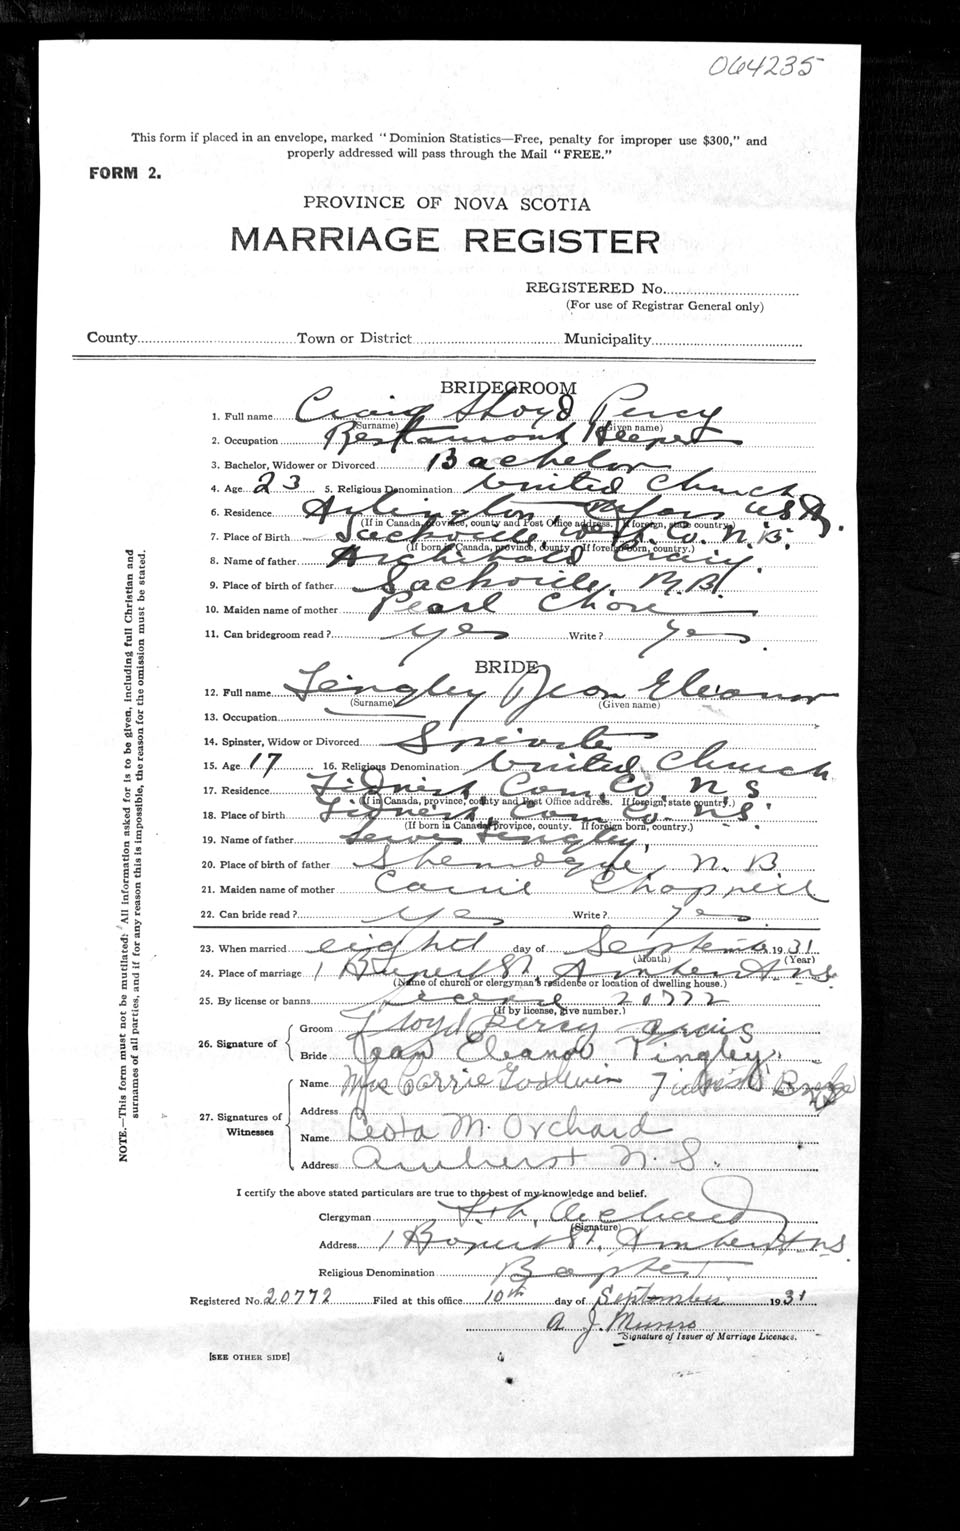 064235
This form if placed in an envelope, marked "Dominion Statistics—Free, penalty for improper use $300," and
properly addressed will pass through the Mail "FREE."
FORM 2.
PROVINCE OF NOVA SCOTIA
MARRIAGE REGISTER
REGISTERED No.
(For use of Registrar General only)
County Town or District Municipality
BRIDEGROOM
1. Full name Craig Lloyd Percy
(Surname) (Given name)
2. Occupation Restaurant Keeper
3. Bachelor, Widower or Divorced Bachelor
4. Age 23 5. Religious Denomination United Church
6. Residence Arlington, Mass USA.
(If in Canada, province, county and Post Office address. If foreign, state country.)
7. Place of Birth Sackville, Co. N.B.
(If born in Canada, province, county. If foreign born, country.)
8. Name of father Archibald Craig
9. Place of birth of father Sackville, N.B.
10. Maiden name of mother Pearl
11. Can bridegroom read? Yes Write? Yes
BRIDE
12. Full name Tingley Jean Eleanor
(Surname) (Given name)
13. Occupation
14. Spinster, Widow or Divorced
15. Age 17 16. Religious Denomination United Church
17. Residence Tidnish, Cum. Co. N S
(If in Canada, province, county and Post Office address. If foreign, state country.)
18. Place of birth Tidnish, Cum Co. N.S.
(If born in Canada, province, county. If foreign born, country.)
19. Name of father Lewis Tingley,
20. Place of birth of father Shemogue, N.B.
21. Maiden name of mother Carrie Chappell
22. Can bride read? Yes Write? Yes.
23. When married eight day of September 1931
(Month) (Year)
24. Place of marriage 1 Rupert St Amherst N.S.
(Name of church or clergyman's residence or location of dwelling house.)
25. By license or banns License 20772
(If by license, give number.)
26. Signature of
Groom Lloyd Percy Craig
Bride Jean Eleanor Tingley
27. Signatures of Witnesses
Name Mrs Carrie Goodwin Tidnish Bridge
Address
Name Leota M. Orchard
Address Amherst N.S.
I certify the above stated particulars are true to the best of my knowledge and belief.
Clergyman Orchard
(Signature)
Address 1 Rupert St. Amherst N.S.
Religious Denomination Baptist
Registered No. 20772 Filed at this office 10th day of September 1931
A. J. Munro
Signature of Issuer of Marriage Licenses.
[SEE OTHER SIDE]
NOTE.—This form must not be mutilated: All information asked for is to be given, including full Christian and
surnames of all parties, and if for any reason this is impossible, the reason for the omission must be stated.